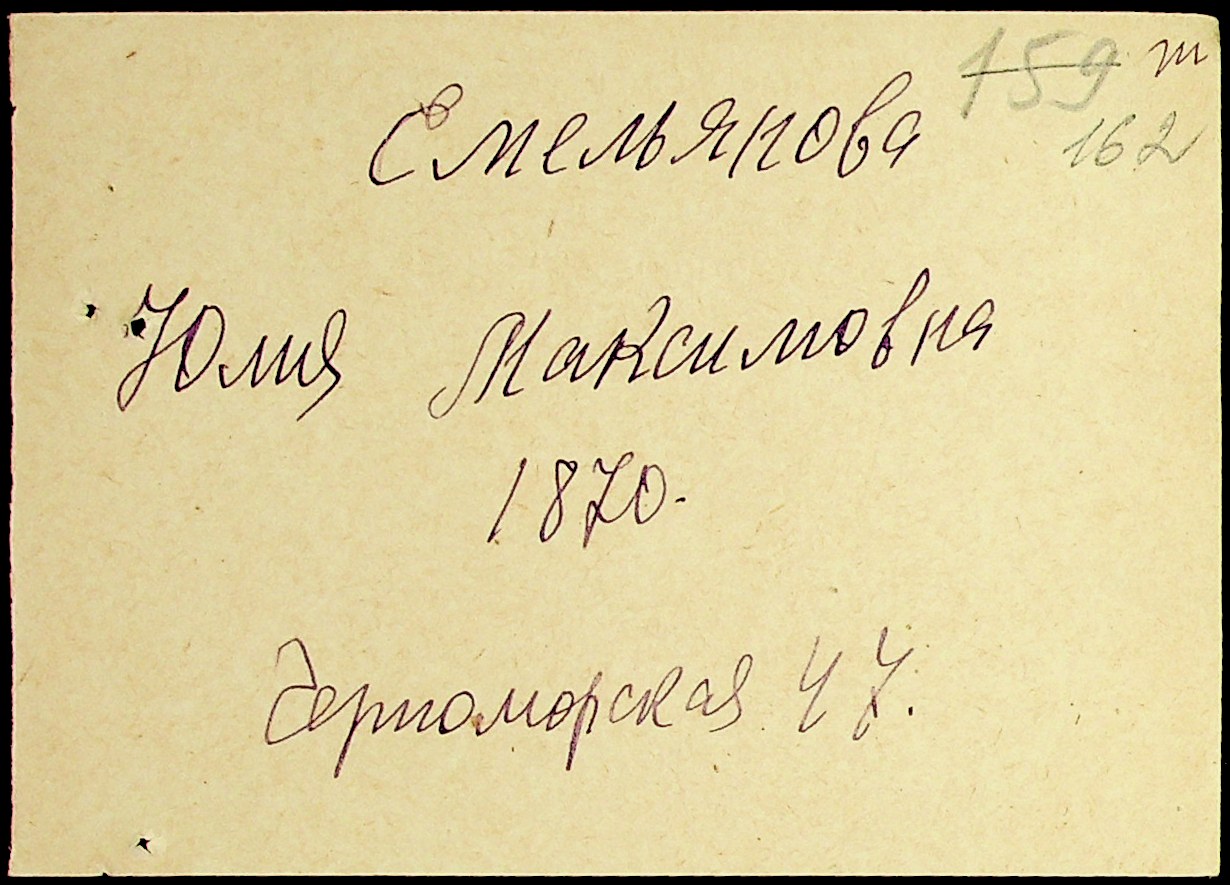 159 т
162
Емельянова
Юлия Максимовна
1870.
Черноморская 47.